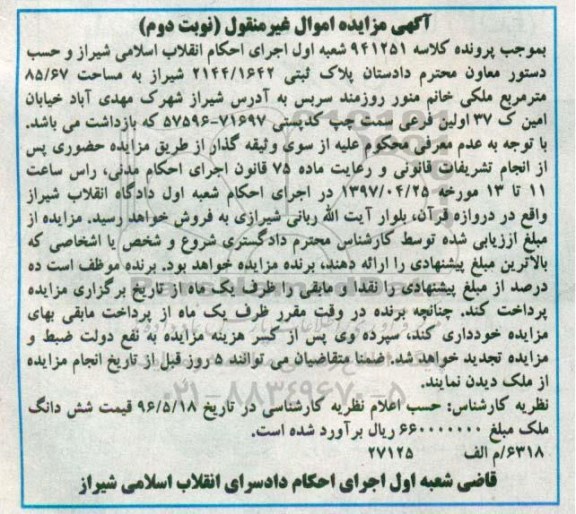 آگهی مزایده اموال غیرمنقول (نوبت دوم)
بموجب پرونده کلاسه ۹۴۱۲۵۱ شعبه اول اجرای احکام انقلاب اسلامی شیراز و حسب
دستور معاون محترم دادستان پلاک ثبتی ۲۱۴۴/۱۶۴۲ شیراز به مساحت ۸۵/۶۷
مترمربع ملکی خانم منور روزمند سربس به آدرس شیراز شهرک مهدی آباد خیابان
امین ک ۳۷ اولین فرعی سمت چپ کدپستی ۷۱۶۹۷-۵۷۵۹۶ که بازداشت می باشد.
با توجه به عدم معرفی محکوم علیه از سوی وثیقه گذار از طریق مزایده حضوری پس
از انجام تشریفات قانونی و رعایت ماده ۷۵ قانون اجرای احکام مدنی، راس ساعت
۱۱ تا ۱۳ مورخه ۱۳۹۷/۰۴/۲۵ در اجرای احکام شعبه اول دادگاه انقلاب شیراز
واقع در دروازه قرآن، بلوار آیت الله ربانی شیرازی به فروش خواهد رسید. مزایده از
مبلغ ارزیابی شده توسط کارشناس محترم دادگستری شروع و شخص یا اشخاصی که
بالاترین مبلغ پیشنهادی را ارائه دهند، برنده مزایده خواهد بود. برنده موظف است ده
درصد از مبلغ پیشنهادی را نقدا و مابقی را ظرف یک ماه از تاریخ برگزاری مزایده
پرداخت کند. چنانچه برنده در وقت مقرر ظرف یک ماه از پرداخت مابقی بهای
مزایده خودداری کند، سپرده وی پس از کسر هزینه مزایده به نفع دولت ضبط و
مزایده تجدید خواهد شد. ضمنا متقاضیان می توانند ۵ روز قبل از تاریخ انجام مزایده
از ملک دیدن نمایند.
نظریه کارشناس: حسب اعلام نظریه کارشناسی در تاریخ ۹۶/۵/۱۸ قیمت شش دانگ
ملک مبلغ ۶۶۰۰۰۰۰۰۰ ریال برآورد شده است.
۶۳۱۸/م الف ۲۷۱۲۵
قاضی شعبه اول اجرای احکام دادسرای انقلاب اسلامی شیراز
۰۲۱-۸۸۳۴۹۶۷۰-۵